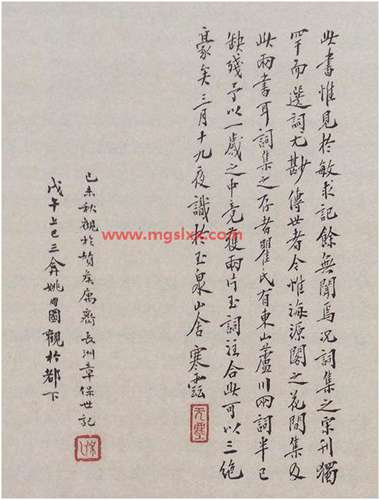 此書惟見於敏求記餘無聞焉況詞集之宋刊獨
罕而選詞尤尠傳世者今惟海源閣之花間集及
此兩書耳詞集之存者瞿氏有東山蘆川兩詞半已
缺殘予以一歲之中竟獲兩片玉詞注合此可以三絕
豪矣三月十九夜識於玉泉山舍寒雲
己未秋觀於贊侯寓齋長洲章保世記
戊午上巳三弇姚朋圖觀於都下
www.mgslxx.com